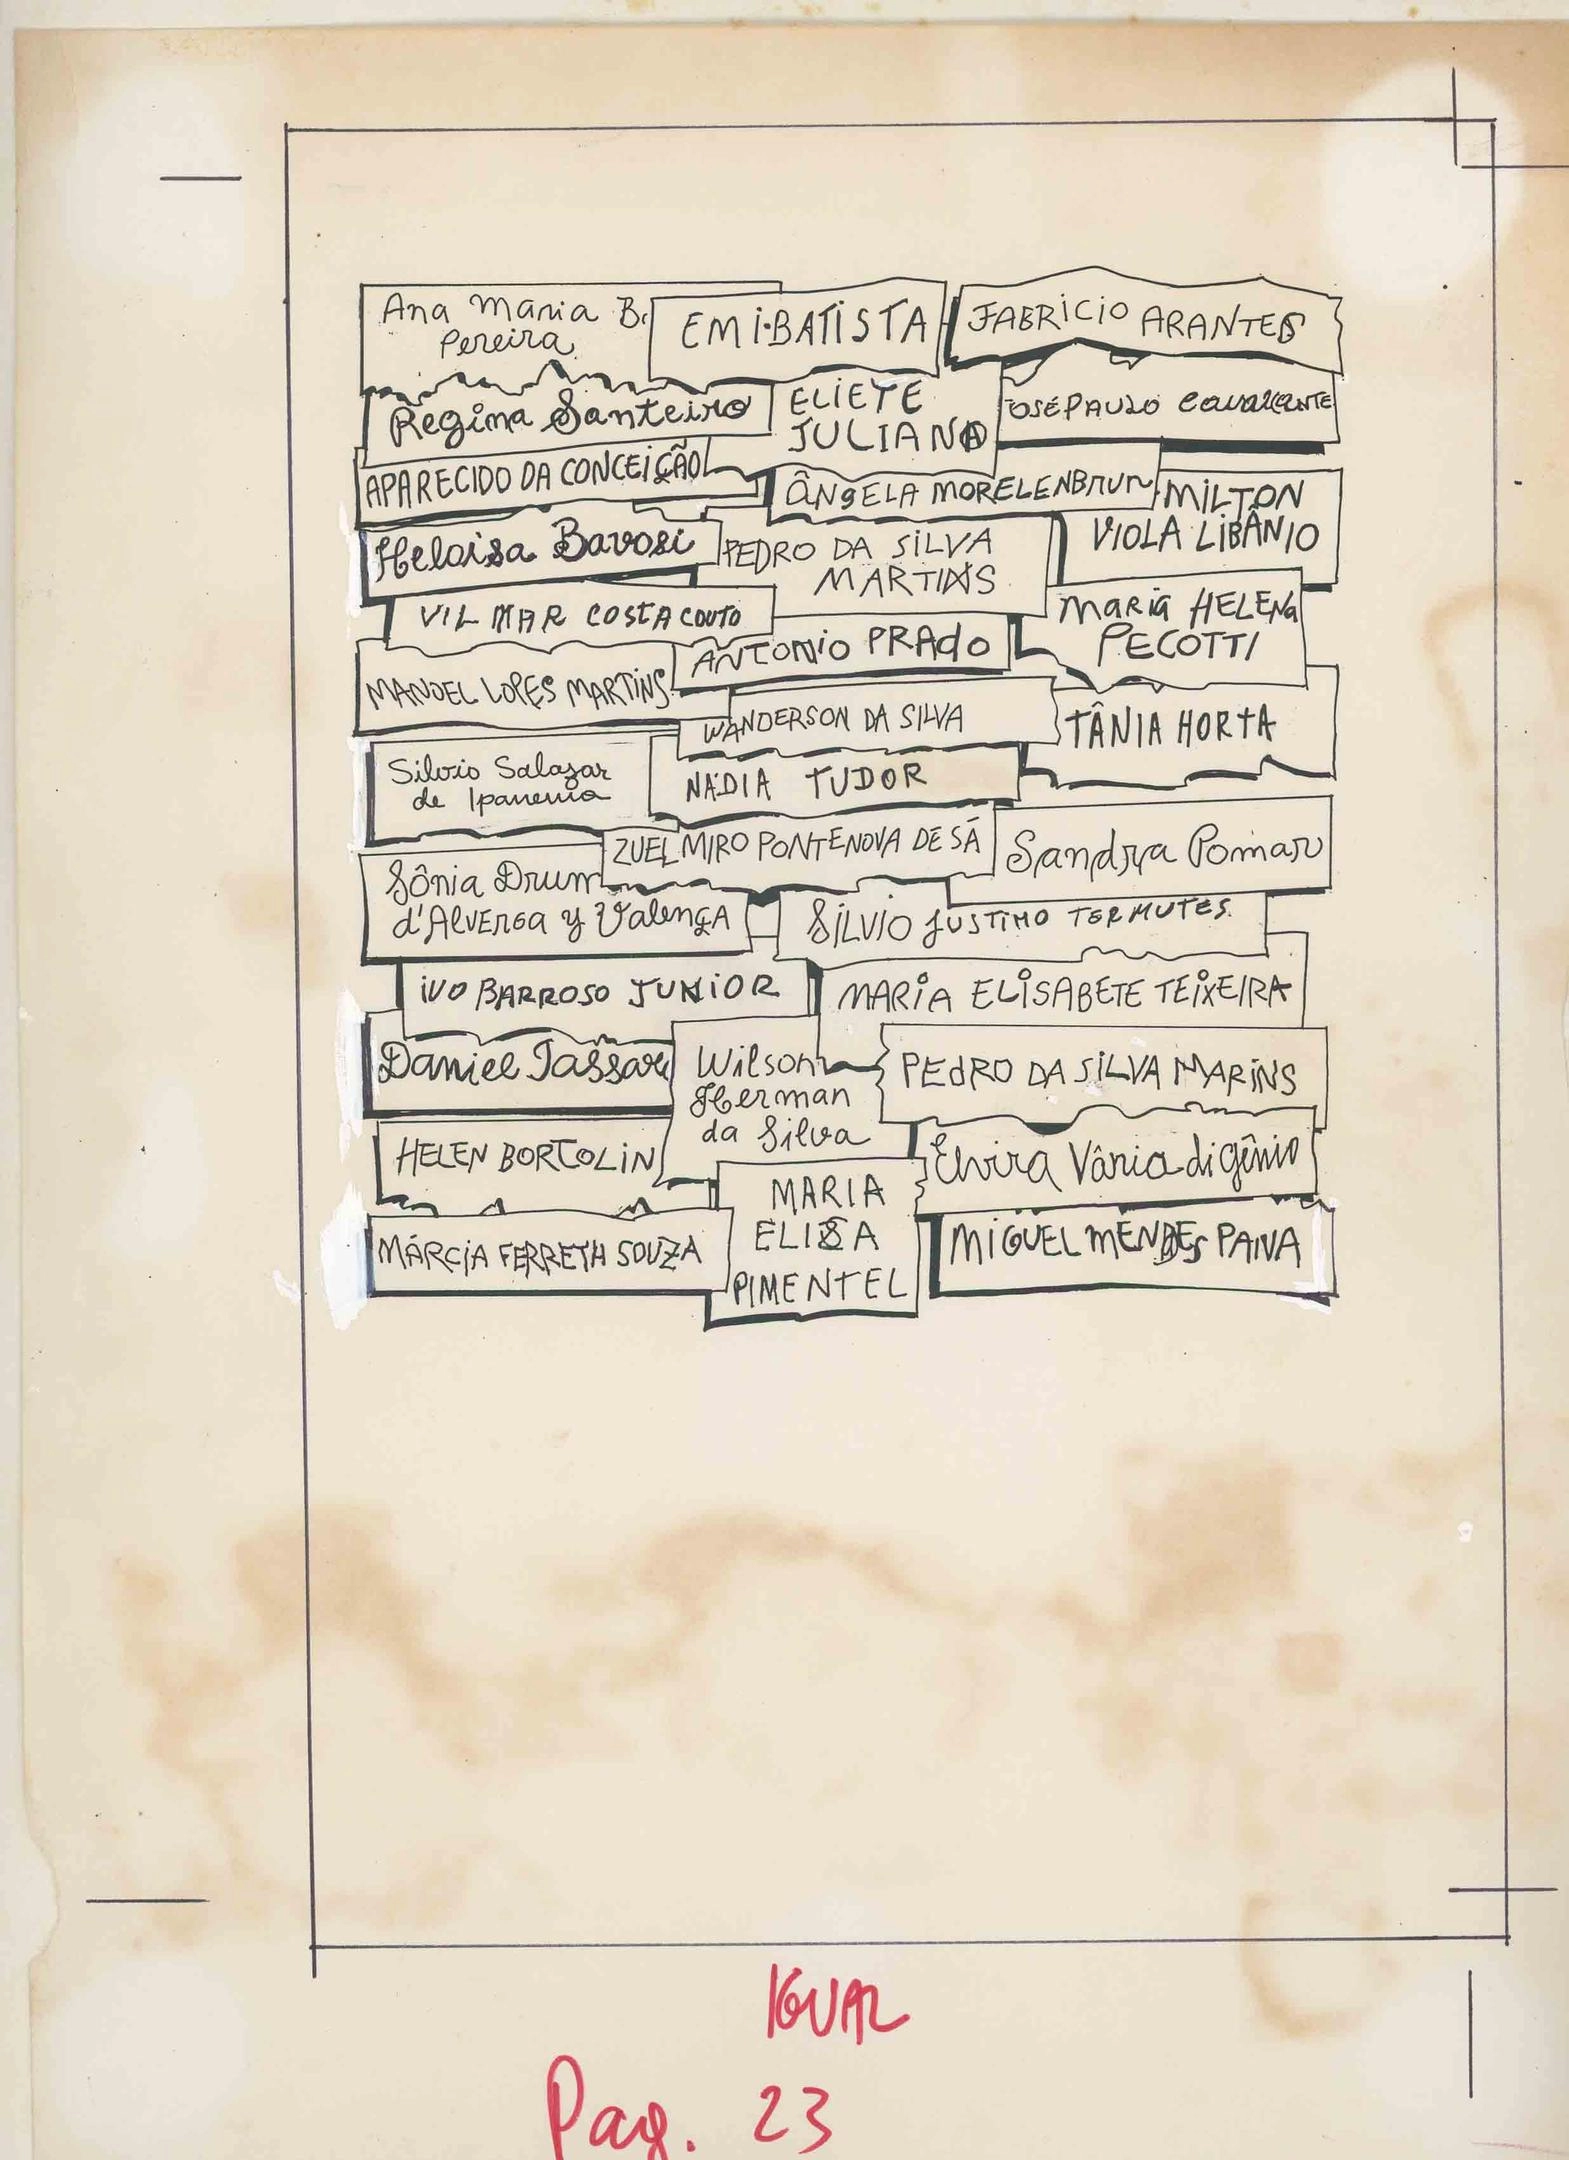 Ana Maria B.
Pereira
EMI•BATISTA
FABRICIO ARANTES
Regina Santeiro
ELIETE
JULIANA
JOSÉ PAULO CAVALCANTE
APARECIDO DA CONCEIÇÃO
ÂNGELA MORELENBRUN
MILTON
VIOLA LIBÂNIO
Heloisa Bavosi
PEDRO DA SILVA
MARTINS
VILMAR COSTA COUTO
MARIA HELENA
PECOTTI
ANTONIO PRADO
MANOEL LOPES MARTINS
WANDERSON DA SILVA
TÂNIA HORTA
Silvio Salazar
de Ipanema
NÁDIA TUDOR
ZUELMIRO PONTENOVA DE SÁ
Sandra Pomar
Sônia Drum
d'Alverga y Valença
SÍLVIO JUSTINO TERMUTES
IVO BARROSO JUNIOR
MARIA ELISABETE TEIXEIRA
Daniel Tassari
Wilson
Herman
da Silva
PEDRO DA SILVA MARINS
HELEN BORTOLIN
Elvira Vânia di gênio
MARIA
ELISA
PIMENTEL
MÁRCIA FERRETH SOUZA
MIGUEL MENDES PAIVA
IGUAL
Pag. 23